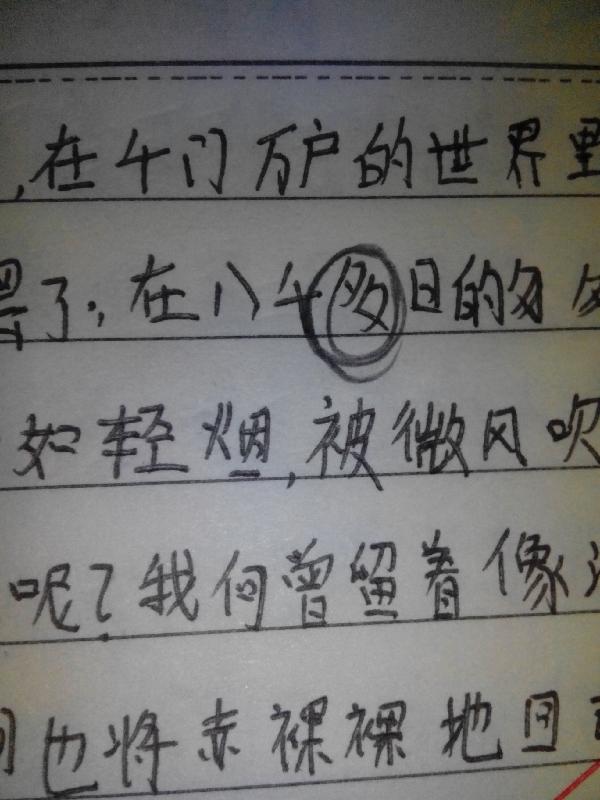 ,在千门万户的世界里
罢了;在八千多日的匆匆
如轻烟,被微风吹
呢?我何曾留着像游
间也将赤裸裸地回